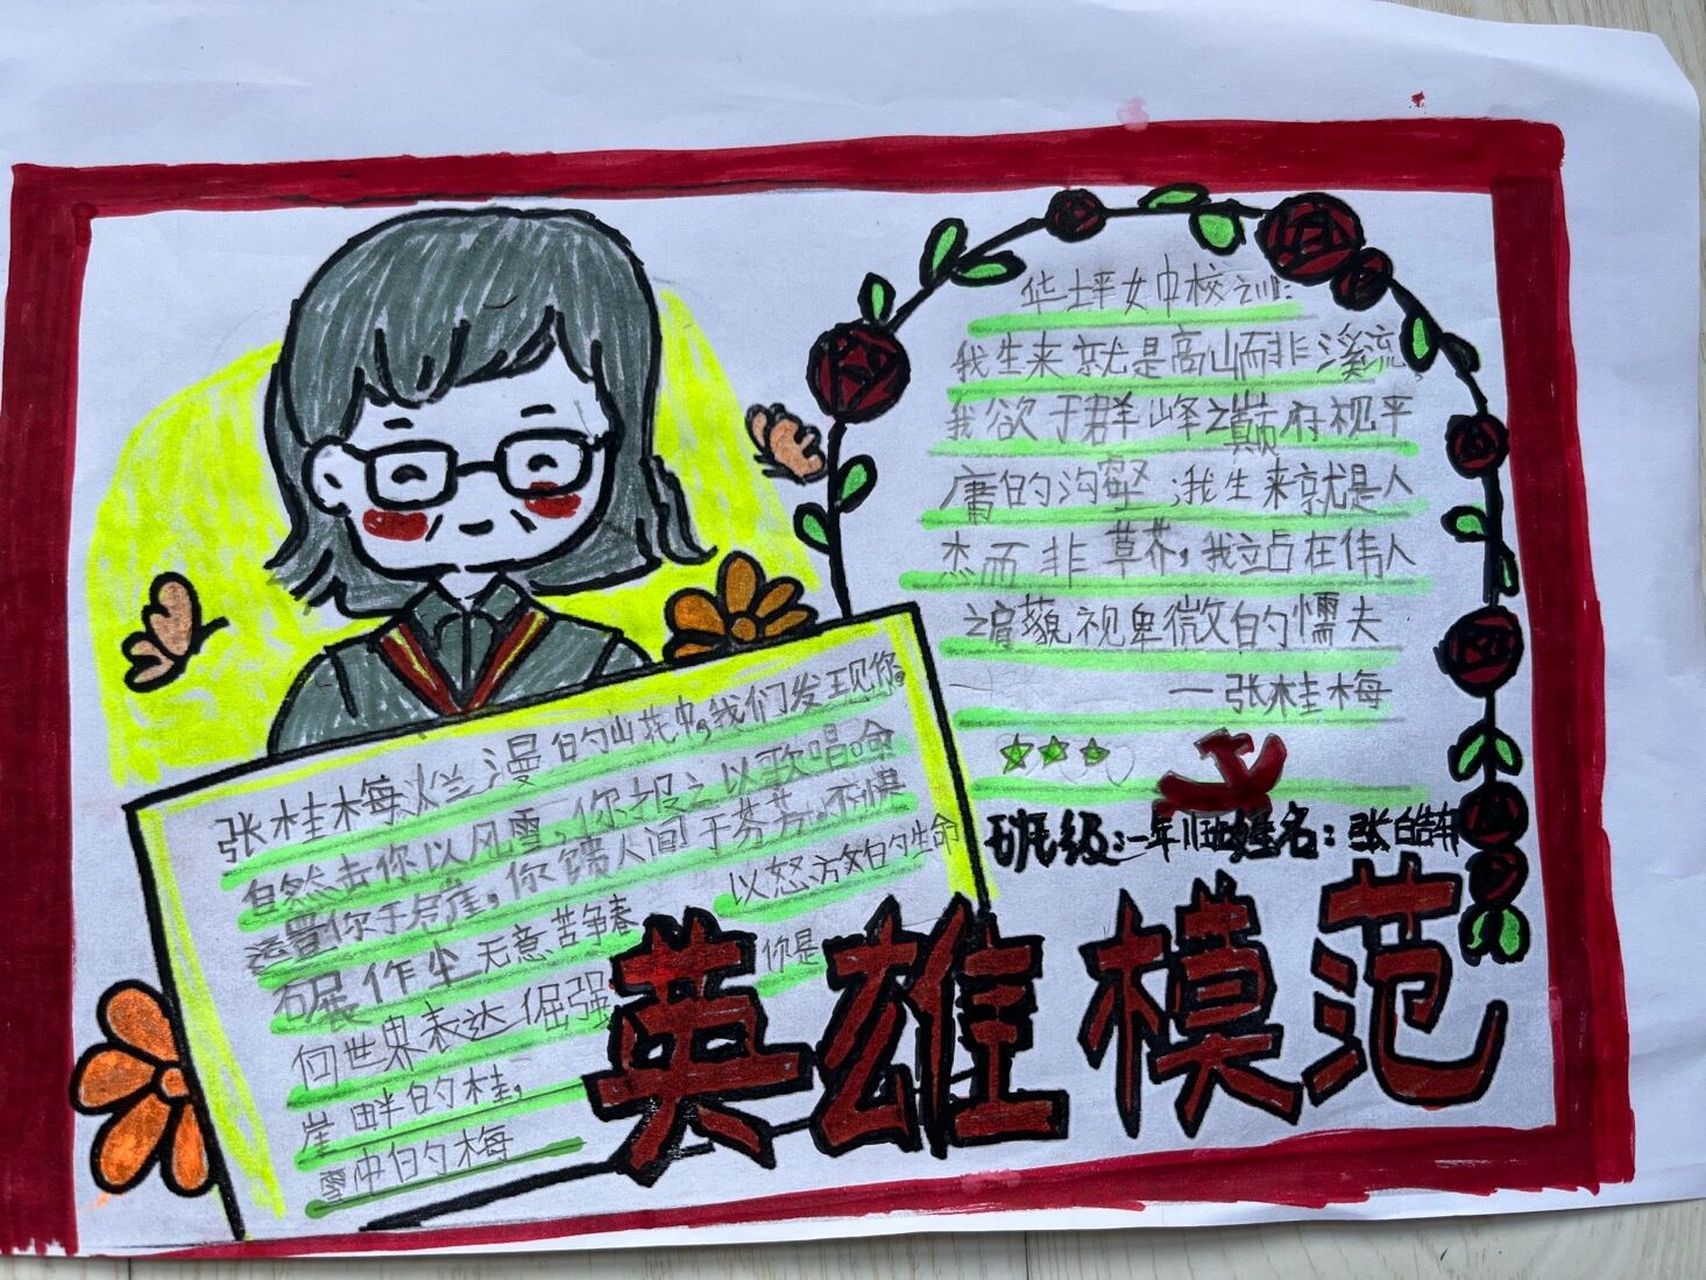 华坪女中校训:
我生来就是高山而非溪流,
我欲于群峰之巅府视平
庸的沟壑;我生来就是人
杰而非草芥,我立占在伟人
之肩藐视卑微的懦夫
—张桂梅
班级:一年11班姓名:张皓轩
张桂梅烂漫的山花中,我们发现你。
自然击你以风雪,你报之以歌唱命
运置你于危崖,你馈人间于芬芳。不惧
碾作尘无意苦争春 以怒方的生命
向世界表达倔强 你是
崖畔的桂,
雪中的梅
英雄模范